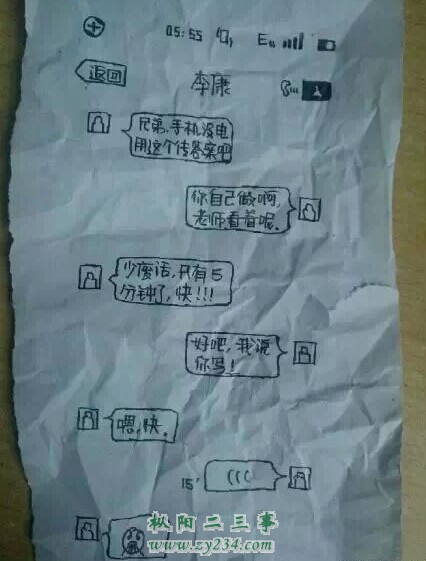 05:55 E
返回
李康
兄弟,手机没电
用这个传答案吧
你自己做啊,
老师看着呢.
少废话,只有5
分钟了,快!!!
好吧,我说
你写!
嗯,快.
15'
枞阳二三事
www.zy234.com